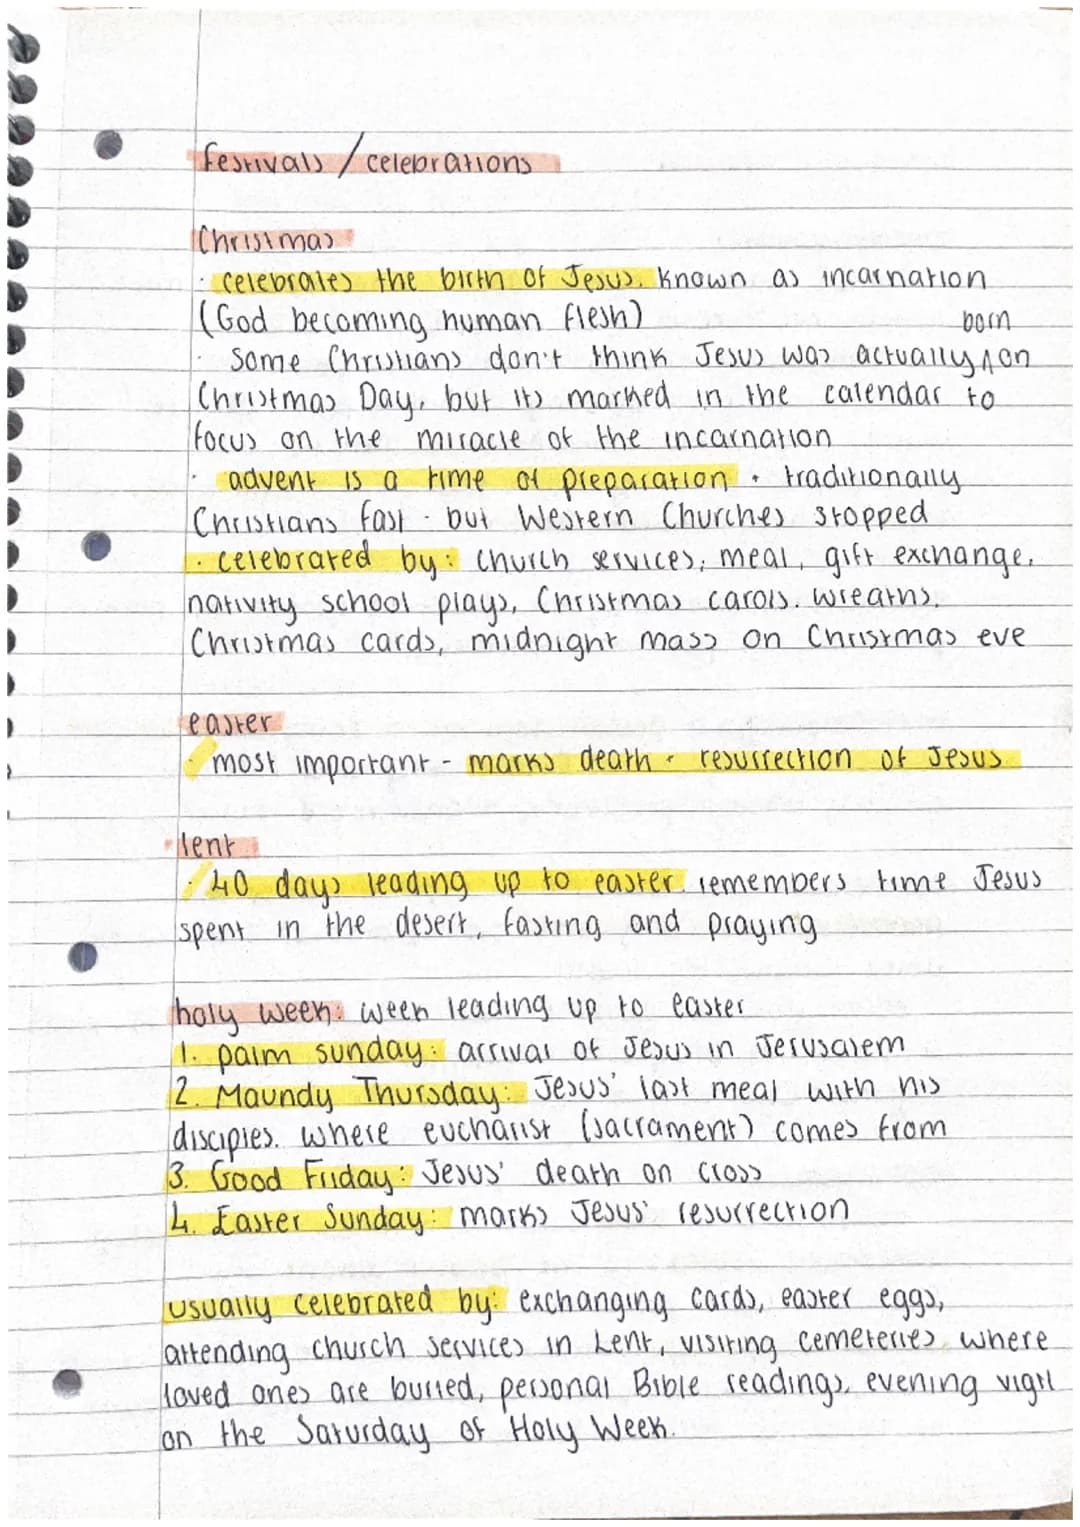 festivals / celebrations
Christmas
· celebrates the birth of Jesus. known as incarnation
(God becoming human flesh)
· some Christians don't think Jesus was actually ^ born on
Christmas Day, but its marked in the calendar to
focus on the miracle of the incarnation
· advent is a time of preparation · traditionally
Christians fast · but Western Churches stopped
· celebrated by: church services, meal, gift exchange,
nativity school plays, Christmas carols, wreaths,
Christmas cards, midnight mass on Christmas eve
easter
· most important - marks death + resurrection of Jesus
lent
· 40 days leading up to easter. remembers time Jesus
spent in the desert, fasting and praying
holy week: week leading up to easter
1. palm sunday: arrival of Jesus in Jerusalem
2. Maundy Thursday: Jesus' last meal with his
disciples. where eucharist (sacrament) comes from
3. Good Friday: Jesus' death on cross
4. Easter Sunday: marks Jesus' resurrection
usually celebrated by: exchanging cards, easter eggs,
attending church services in Lent, visiting cemeteries where
loved ones are buried, personal Bible readings, evening vigil
on the Saturday of Holy Week.